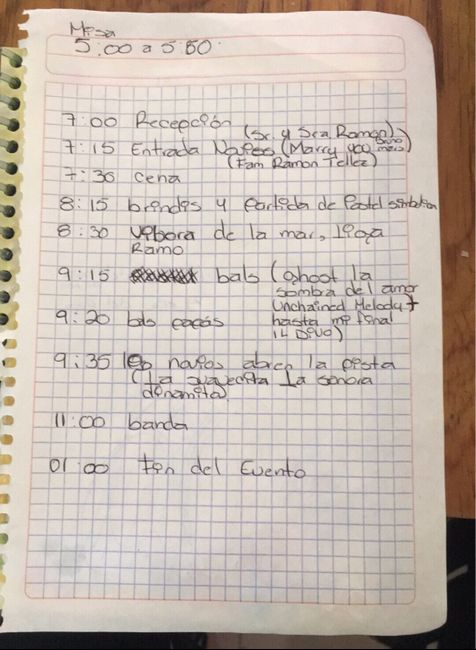 Misa
5:00 a 5:50
7:00 Recepción (Sr. y Sra. Ramon)
7:15 Entrada Novios (Marry you Bruno mars)
(Fam Ramon Tellez)
7:30 cena
8:15 brindis y partida de Pastel simbolica
8:30 vibora de la mar, liga
Ramo
9:15 bals (ghost la
sombra del amor
Unchained Melody +
9:20 bls papás hasta mi final
IL DIVO)
9:35 los novios abren la pista
(La suavecita La sonora
dinamita)
11:00 banda
01:00 Fin del Evento